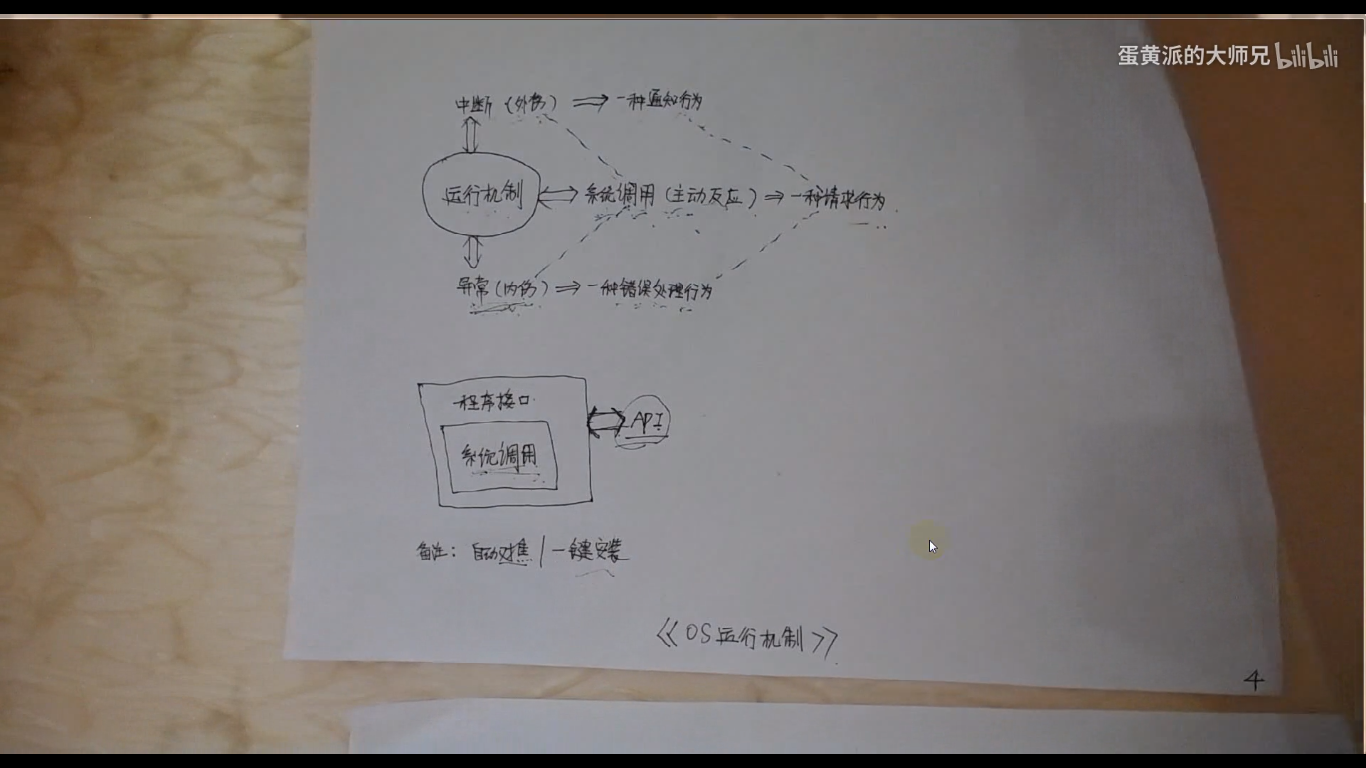 蛋黄派的大师兄 bilibili
中断(外伤) ⇒ 一种通知行为
运行机制 ⇔ 系统调用(主动反应) ⇒ 一种请求行为
异常(内伤) ⇒ 一种错误处理行为
程序接口
API
系统调用
备注: 自动对焦 / 一键安装
《OS运行机制》
4